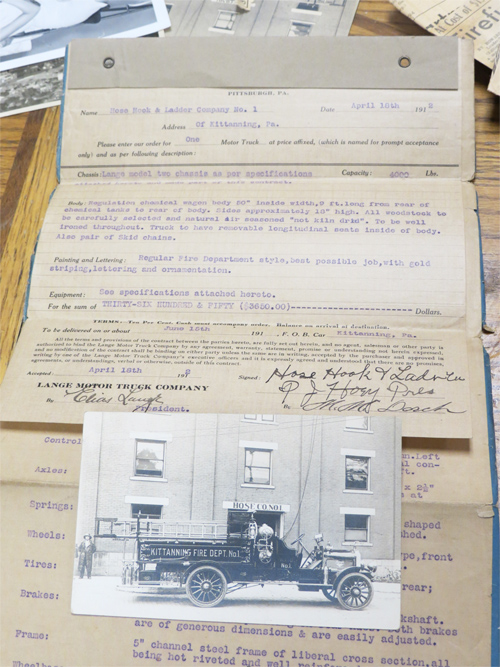 PITTSBURGH, PA.
Name Hose Hook & Ladder Company No. 1 Date April 18th 191
Address Of Kittanning, Pa.
Please enter our order for One Motor Truck at price affixed, (which is named for prompt acceptance
only) and as per following description:
Chassis Lange model two chassis as per specifications Capacity: 4000 Lbs.
Body: Regulation chemical wagon body 50" inside width, 9 ft. long from rear of
chemical tanks to rear of body. Sides approximately 18" high. All woodstock to
be carefully selected and natural air seasoned "not kiln drid". To be well
ironed throughout. Truck to have removable longitudinal seats inside of body.
Also pair of Skid chains.
Painting and Lettering: Regular Fire Department style, best possible job, with gold
striping, lettering and ornamentation.
Equipment: See specifications attached hereto.
For the sum of THIRTY-SIX HUNDRED & FIFTY ($3650.00) Dollars.
TERMS: Ten Per Cent. Cash must accompany order. Balance on arrival at destination.
To be delivered on or about June 15th 191 , F. O. B. Car Kittanning, Pa.
All the terms and provisions of the contract between the parties hereto, are fully set out herein, and no agent, salesman or other party is
authorized to bind the Lange Motor Truck Company by any agreement, warranty, statement, promise or understanding not herein expressed,
and no modification of the contract shall be binding on either party unless the same are in writing, accepted by the purchaser and approved in
writing by one of Lange Motor Truck Company's executive officers and it is expressly agreed and understood that there are no promises,
agreements or understandings, verbal or otherwise, outside of this contract.
Accepted: April 18th 191 Signed: Hose Hook & Ladder Co
LANGE MOTOR TRUCK COMPANY P J Hoey Pres
By Elias Lange By
President.
Control
Left
Axles:
x 2½"
at
Springs:
shaped
Wheels:
type, front
Tires:
rear;
Brakes:
are of generous dimensions & are easily adjusted.
brakes
Frame: 5" channel steel frame of liberal cross section, all
being hot riveted and well
HOSE CO. NO. 1
KITTANNING FIRE DEPT. No. 1
No. 1